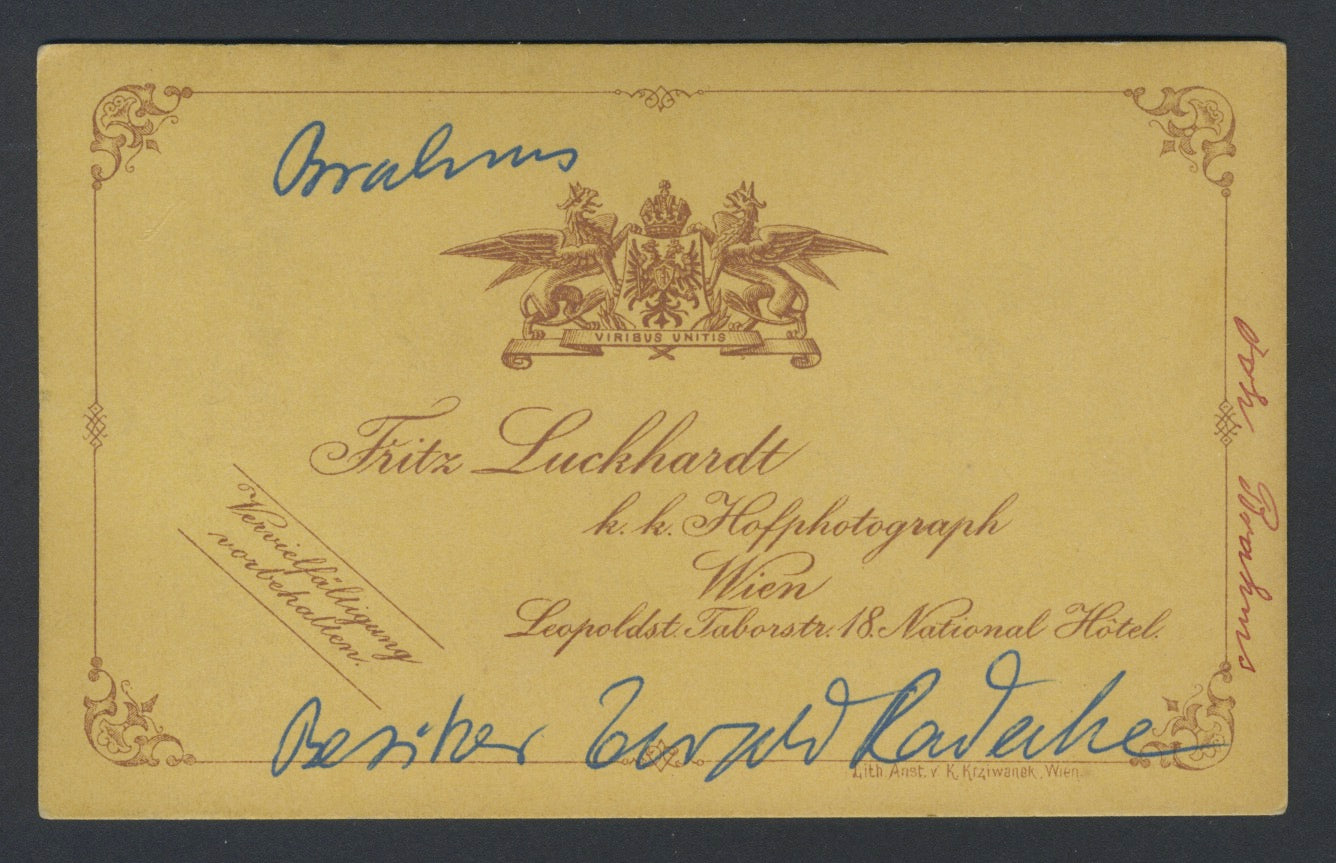 Brahms
VIRIBUS UNITIS
Fritz Luckhardt
k. k. Hofphotograph
Wien
Leopoldst. Taborstr. 18. National Hôtel.
Vervielfältigung
vorbehalten.
Besitzer Ewald Radecke
Lith. Anst. v. K. Krziwanek, Wien.
Brahms